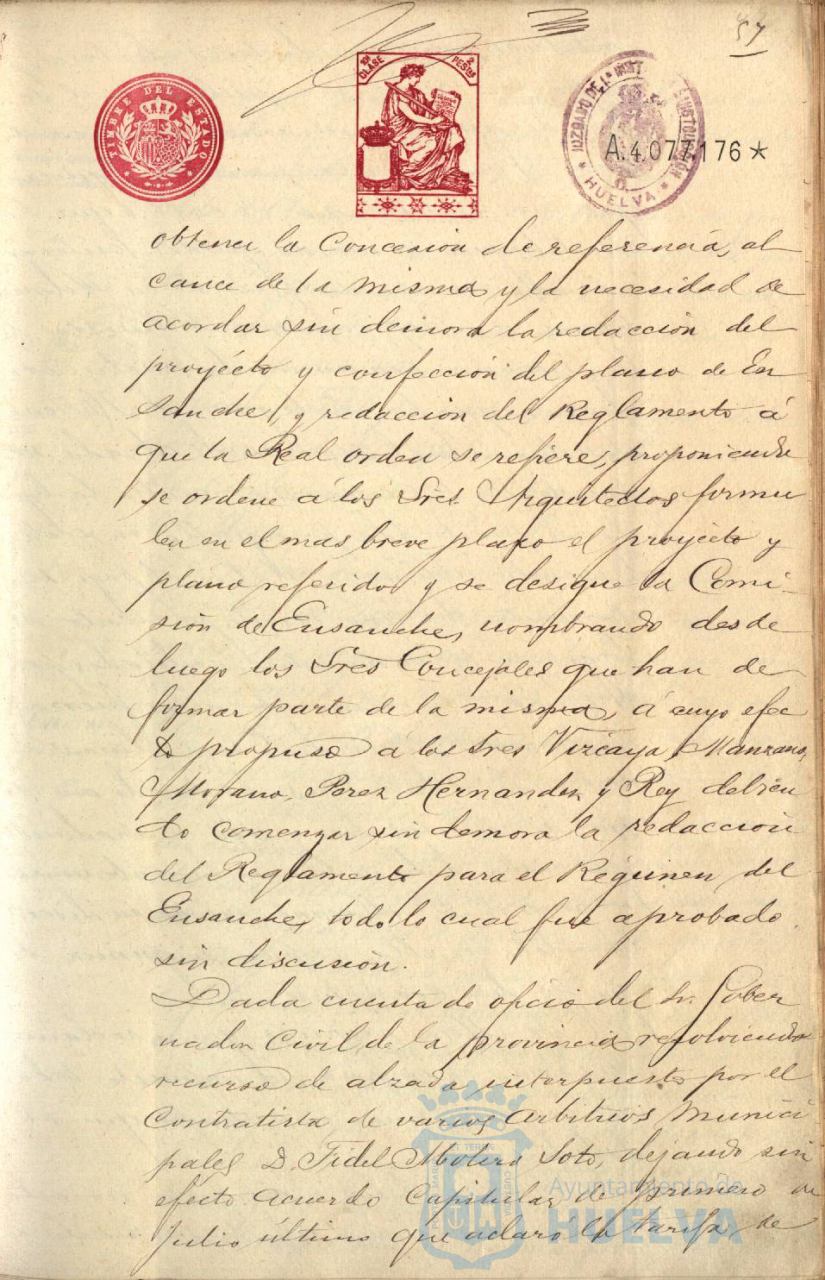 57
TIMBRE DEL ESTADO
CLASE 2 PESETAS
JUZGADO DE 1ª INST INSTRUCCION
HUELVA
A.4.077.176 *
obtener la Concesion de referencia, al
cance de la misma y la necesidad de
acordar sin demora la redacción del
proyécto y confección del plano de En
sanche, y redaccion del Reglamento á
que la Real orden se refiere, proponiendo
se ordene á los Sres. Arquitectos formu
len en el mas breve plazo el proyécto y
plano referidos y se designe la Comi-
sión de Ensanche, nombrando desde
luego los Sres Concejales que han de
formar parte de la misma, á cuyo efec
to propuso á los Sres Vizcaya, Manzano,
Morano, Perez Hernandez y Rey debien
do comenzar sin demora la redaccion
del Reglamento para el Régimen del
Ensanche, todo lo cual fué aprobado
sin discusión.
Dada cuenta de oficio del Sr. Gober
nador Civil de la provincia resolviendo
recurso de alzada interpuesto por el
Contratista de varios Arbitrios Munici
pales D. Fidel Molero Soto, dejando sin
efecto acuerdo Capitular de primero de
Julio último que aclaró la tarifa de
Ayuntamiento de
HUELVA